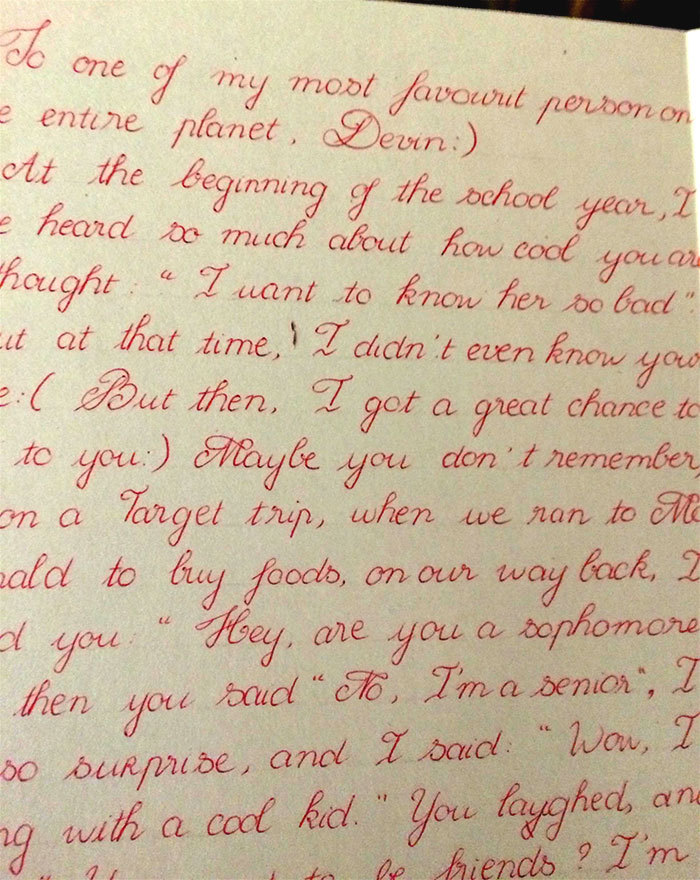 To one of my most favourit person on
e entire planet, Devin:)
At the beginning of the school year, I
e heard so much about how cool you are
thought: " I want to know her so bad".
ut at that time, I didn't even know you
e:( But then, I got a great chance to
to you:) Maybe you don't remember,
on a Target trip, when we ran to Mc
nald to buy foods, on our way back, I
d you: " Hey, are you a sophomore
then you said " No, I'm a senior", I
so surprise, and I said: " Wow, I
ng with a cool kid." You layghed, and
to be friends? I'm